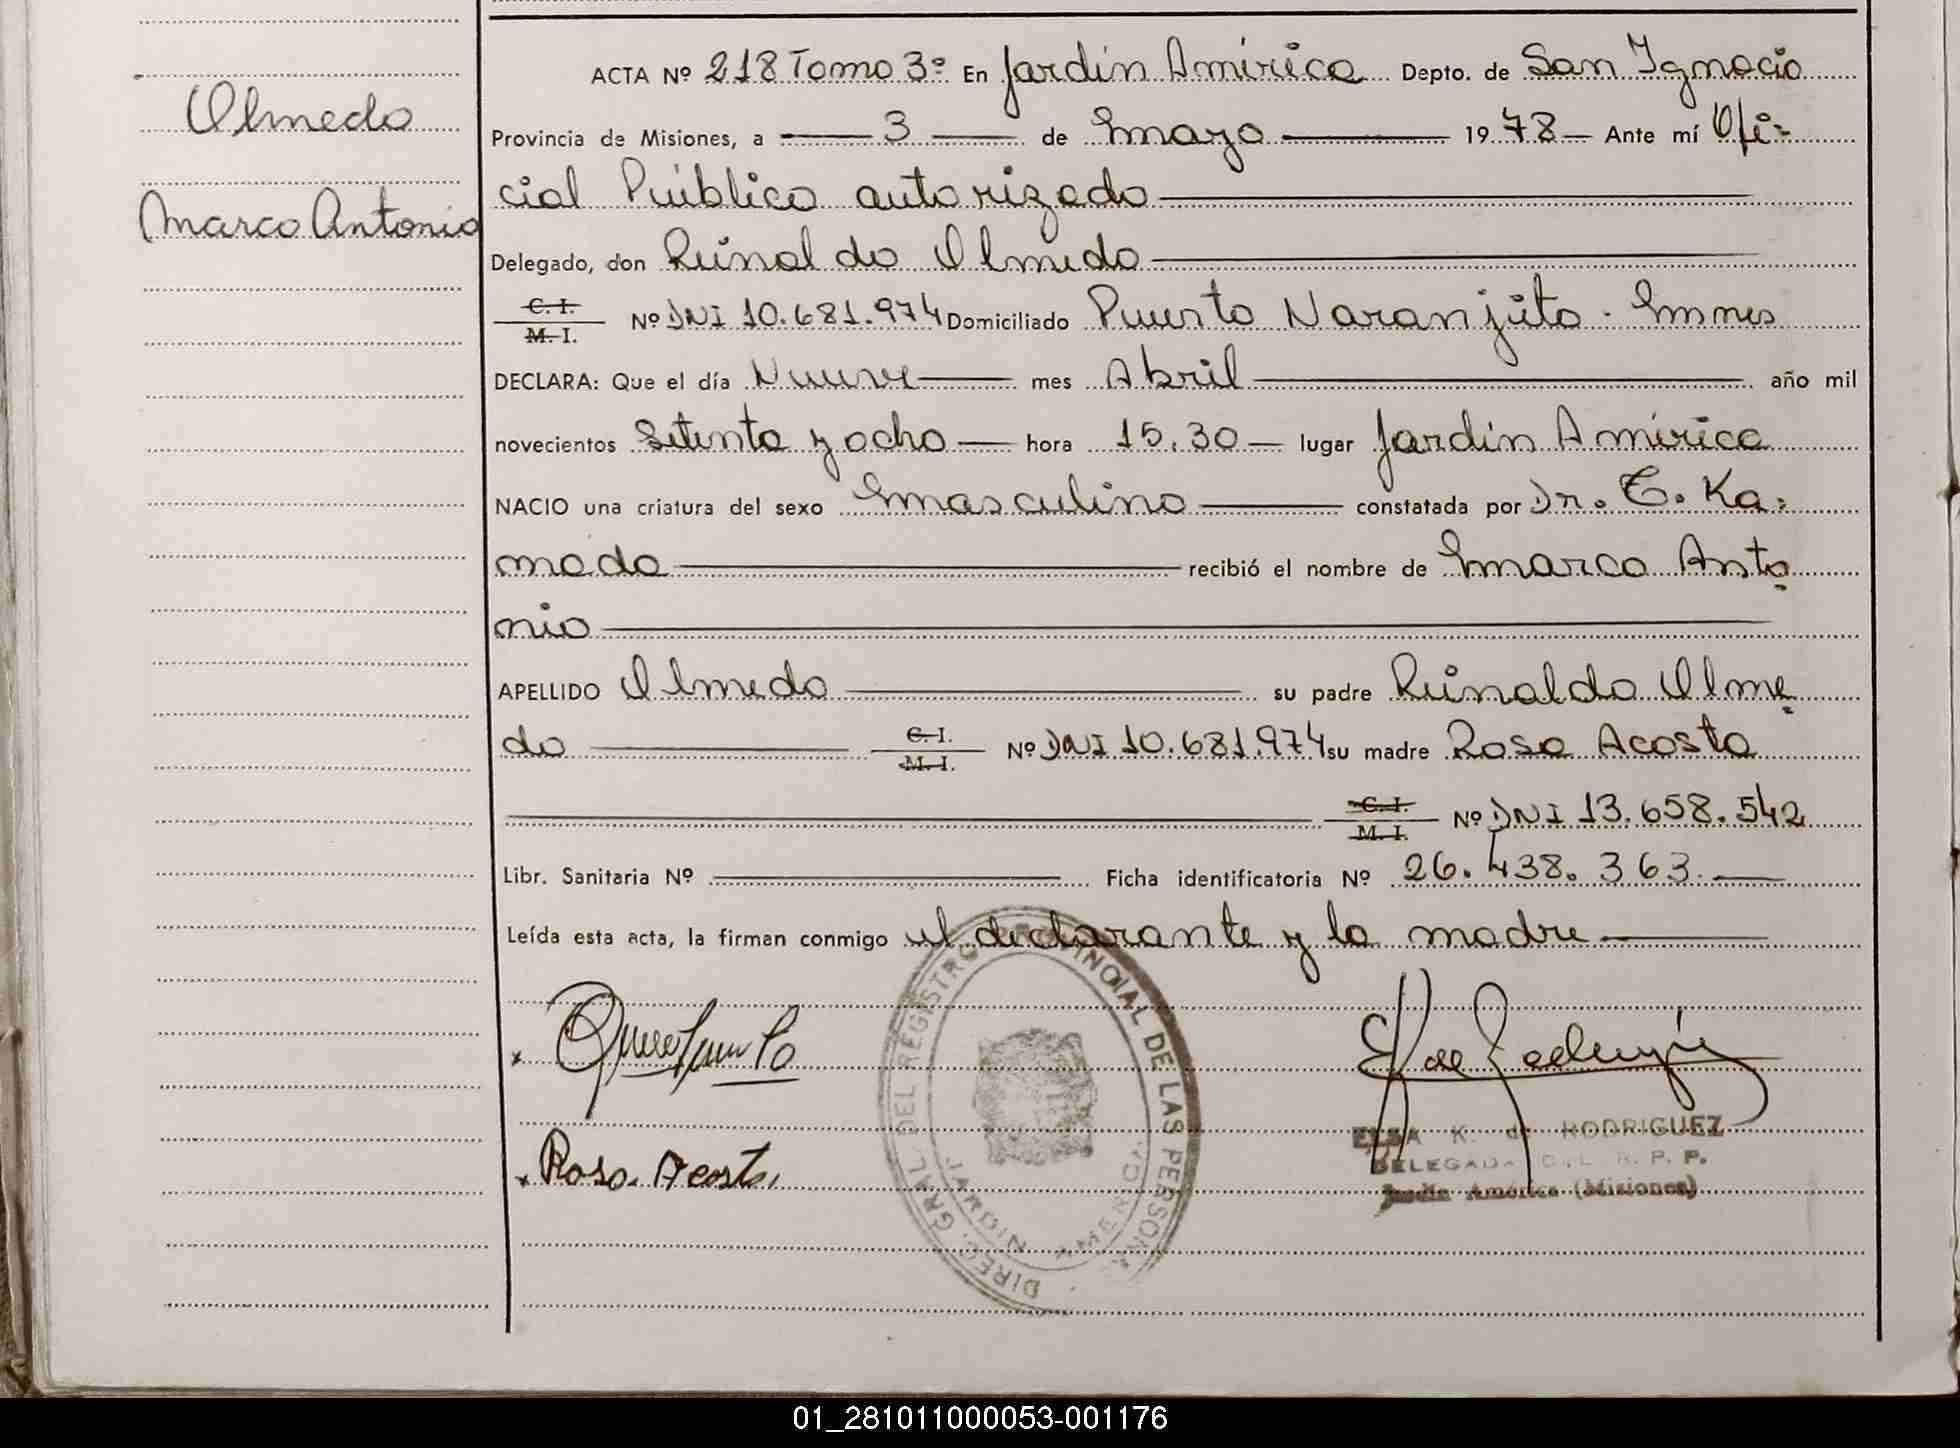 Olmedo
Marco Antonio
ACTA Nº 218 Tomo 3º En Jardín América Depto. de San Ignacio
Provincia de Misiones, a 3 de mayo 1978 Ante mí Ofi-
cial Público autorizado
Delegado, don Reinaldo Olmedo
C. I.
M. I. Nº DNI 10.681.974 Domiciliado Puerto Naranjito - Mnes
DECLARA: Que el día Nueve mes Abril año mil
novecientos setenta y ocho hora 15.30 lugar Jardín América
NACIO una criatura del sexo masculino constatada por Dr. T. Ka-
mada recibió el nombre de Marco Anto
nio
APELLIDO Olmedo su padre Reinaldo Olme
do C. I. M. I. Nº DNI 10.681.974 su madre Rosa Acosta
C. I. M. I. Nº DNI 13.658.542
Libr. Sanitaria Nº Ficha identificatoria Nº 26.438.363.
Leída esta acta, la firman conmigo el declarante y la madre
Rosa Acosta
DIREC. GRAL. DEL REGISTRO PROVINCIAL DE LAS PERSONAS
JARDIN AMERICA
ELSA K. de RODRIGUEZ
DELEGADA R. P. P.
Jardín América (Misiones)
01_281011000053-001176